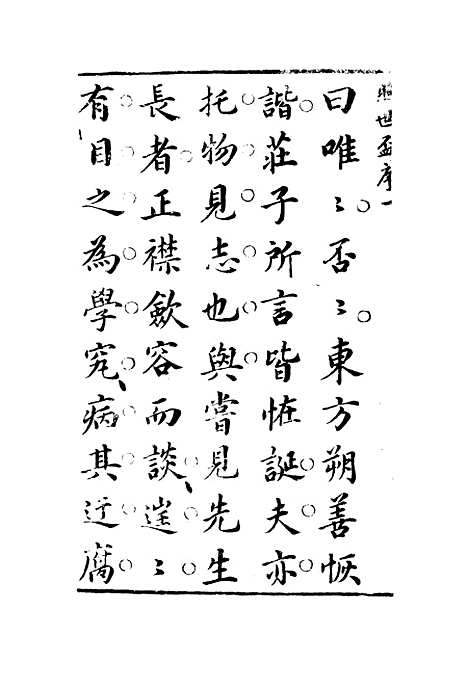 照世盃序一
曰唯〻否〻東方朔善恢
諧莊子所言皆恠誕夫亦
托物見志也與嘗見先生
長者正襟歛容而談往〻
有目之為學究病其迂腐